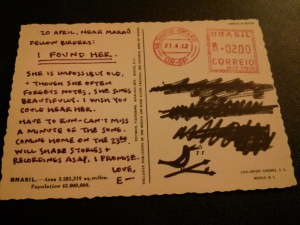 20 APRIL, NEAR MARAÚ
FELLOW BIRDERS!
I FOUND HER.
SHE IS IMPOSSIBLY OLD,
+ THOUGH SHE OFTEN
FORGETS NOTES, SHE SINGS
BEAUTIFULLY. I WISH YOU
COULD HEAR HER.
HAVE TO RUN - CAN'T MISS
A MINUTE OF THE SONG.
COMING HOME ON THE 23RD.
WILL SHARE STORIES +
RECORDINGS ASAP, I PROMISE.
LOVE,
E—
BRASIL.— Area 3.285,319 sq. miles.
Population 42.000,000.
21.4.52
BRASIL
0200
CORREIO
MEXICO D. F.